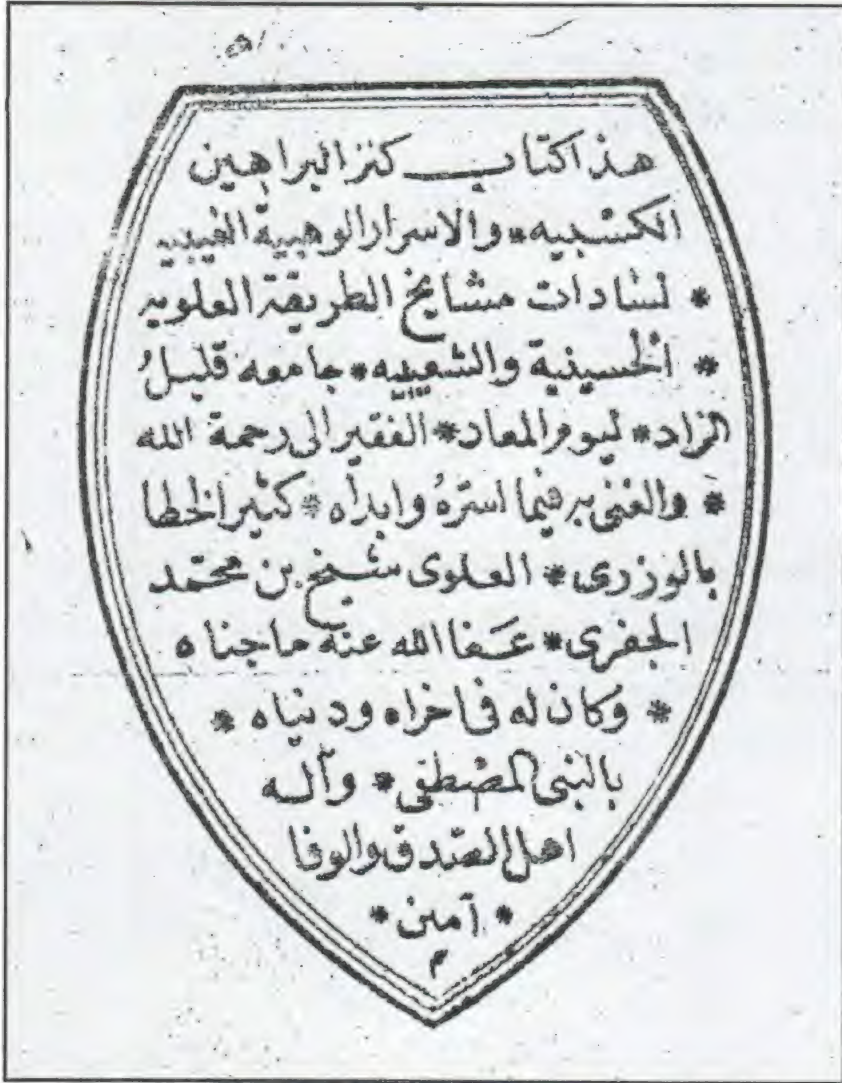 هذا كتاب كنز البراهين
الكسبيه * والاسرار الوهبية الغيبيه
* لسادات مشايخ الطريقة العلويه
* الحسينية والشعيبيه * جامعه قليل
الزاد * ليوم المعاد * الفقير الى رحمة الله
* والغنى به فيما اسرّهُ وابداه * كثير الخطا
بالوزرى * العلوى شيخ بن محمّد
الجفرى * عفا الله عنه ماجناه
* وكان له فى اخراه ودنياه *
بالنبى المصطفى * وآله
اهل الصّدق والوفا
* آمين *
م